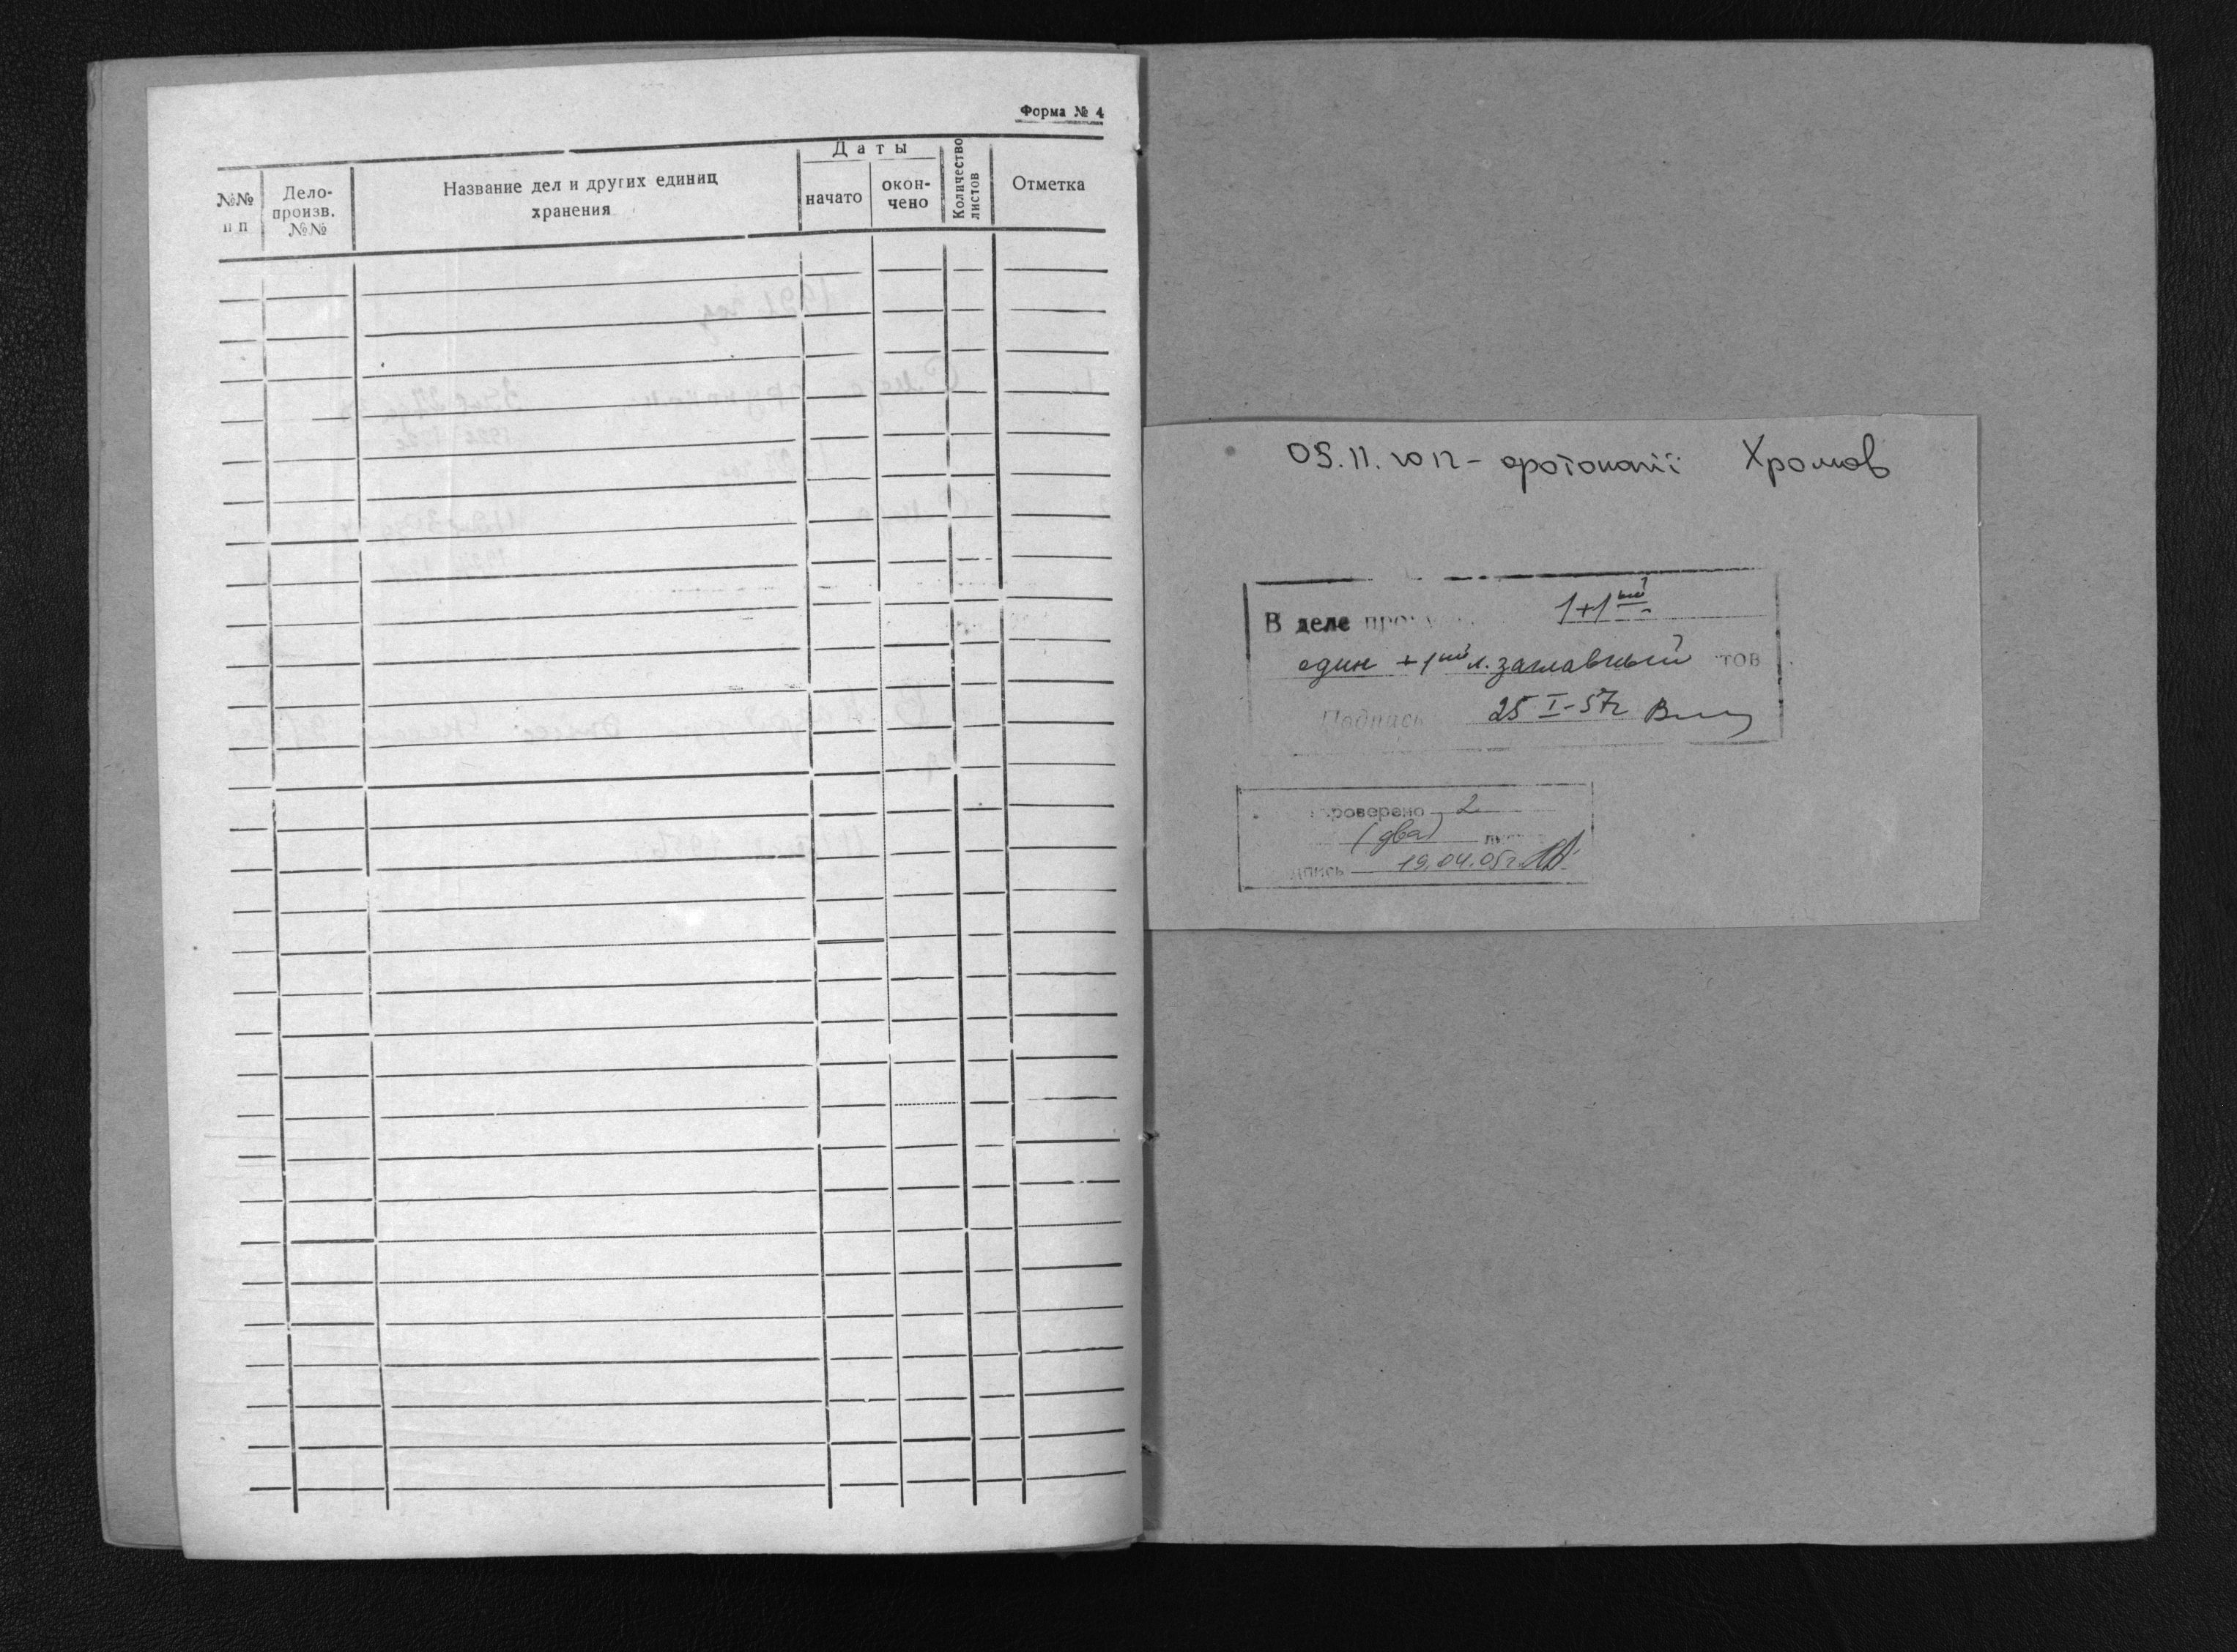 Форма № 4
№№ п п
Дело-произв. №№
Название дел и других единиц хранения
Даты
начато
окон-чено
Количество листов
Отметка
05.11.2012 - фотокопії Хромов
В деле 1+1ый
один + 1ый л. заглавный тов
Подпись 25 I-57г
роверено 2
(два)
дпись 19.04.05г.